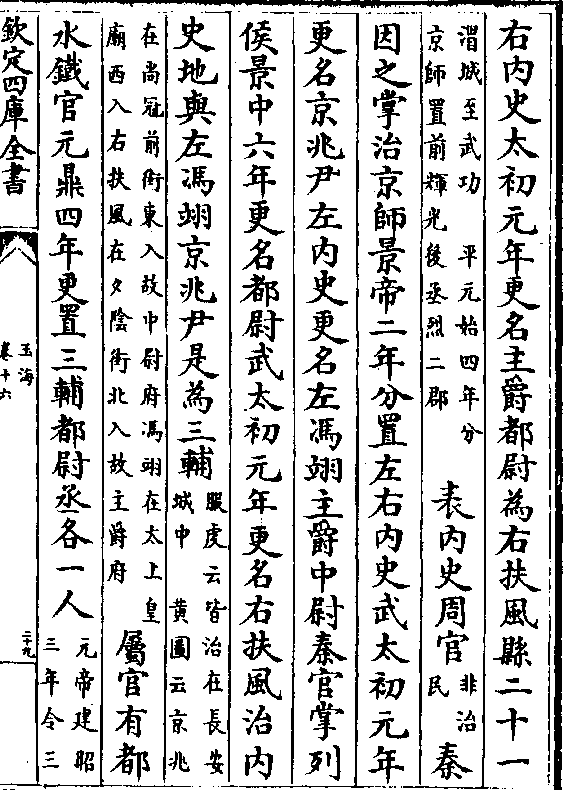 右内史太初元年更名主爵都尉為右扶風縣二十一
渭城至武功　平元始四年分
京師置前輝光後丞烈二郡
表内史周官
非治
民
秦
因之掌治京師景帝二年分置左右内史武太初元年
更名京兆尹左内史更名左馮翊主爵中尉秦官掌列
侯景中六年更名都尉武太初元年更名右扶風治内
史地與左馮翊京兆尹是為三輔
服虔云皆治在長安
城中　黄圖云京兆
在尚冠前街東入故中尉府馮翊在太上皇
廟西入右扶風在夕陰街北入故主爵府
屬官有都
水鐵官元鼎四年更置三輔都尉丞各一人
元帝建昭
三年令三
欽定四庫全書
玉海
卷十六
二十九